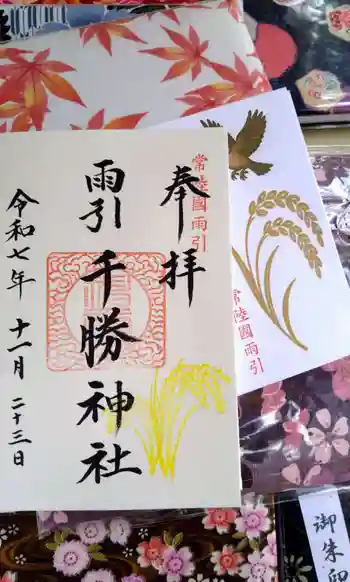 奉拝
常陸國雨引
雨引千勝神社
令和七年 十一月 二十三日
常陸國雨引
御朱印